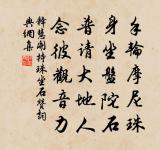 手輪摩尼珠
身坐盤陀石
普請大地人
念彼觀音力
釋慧勝持珠坐石贊詞
典網集